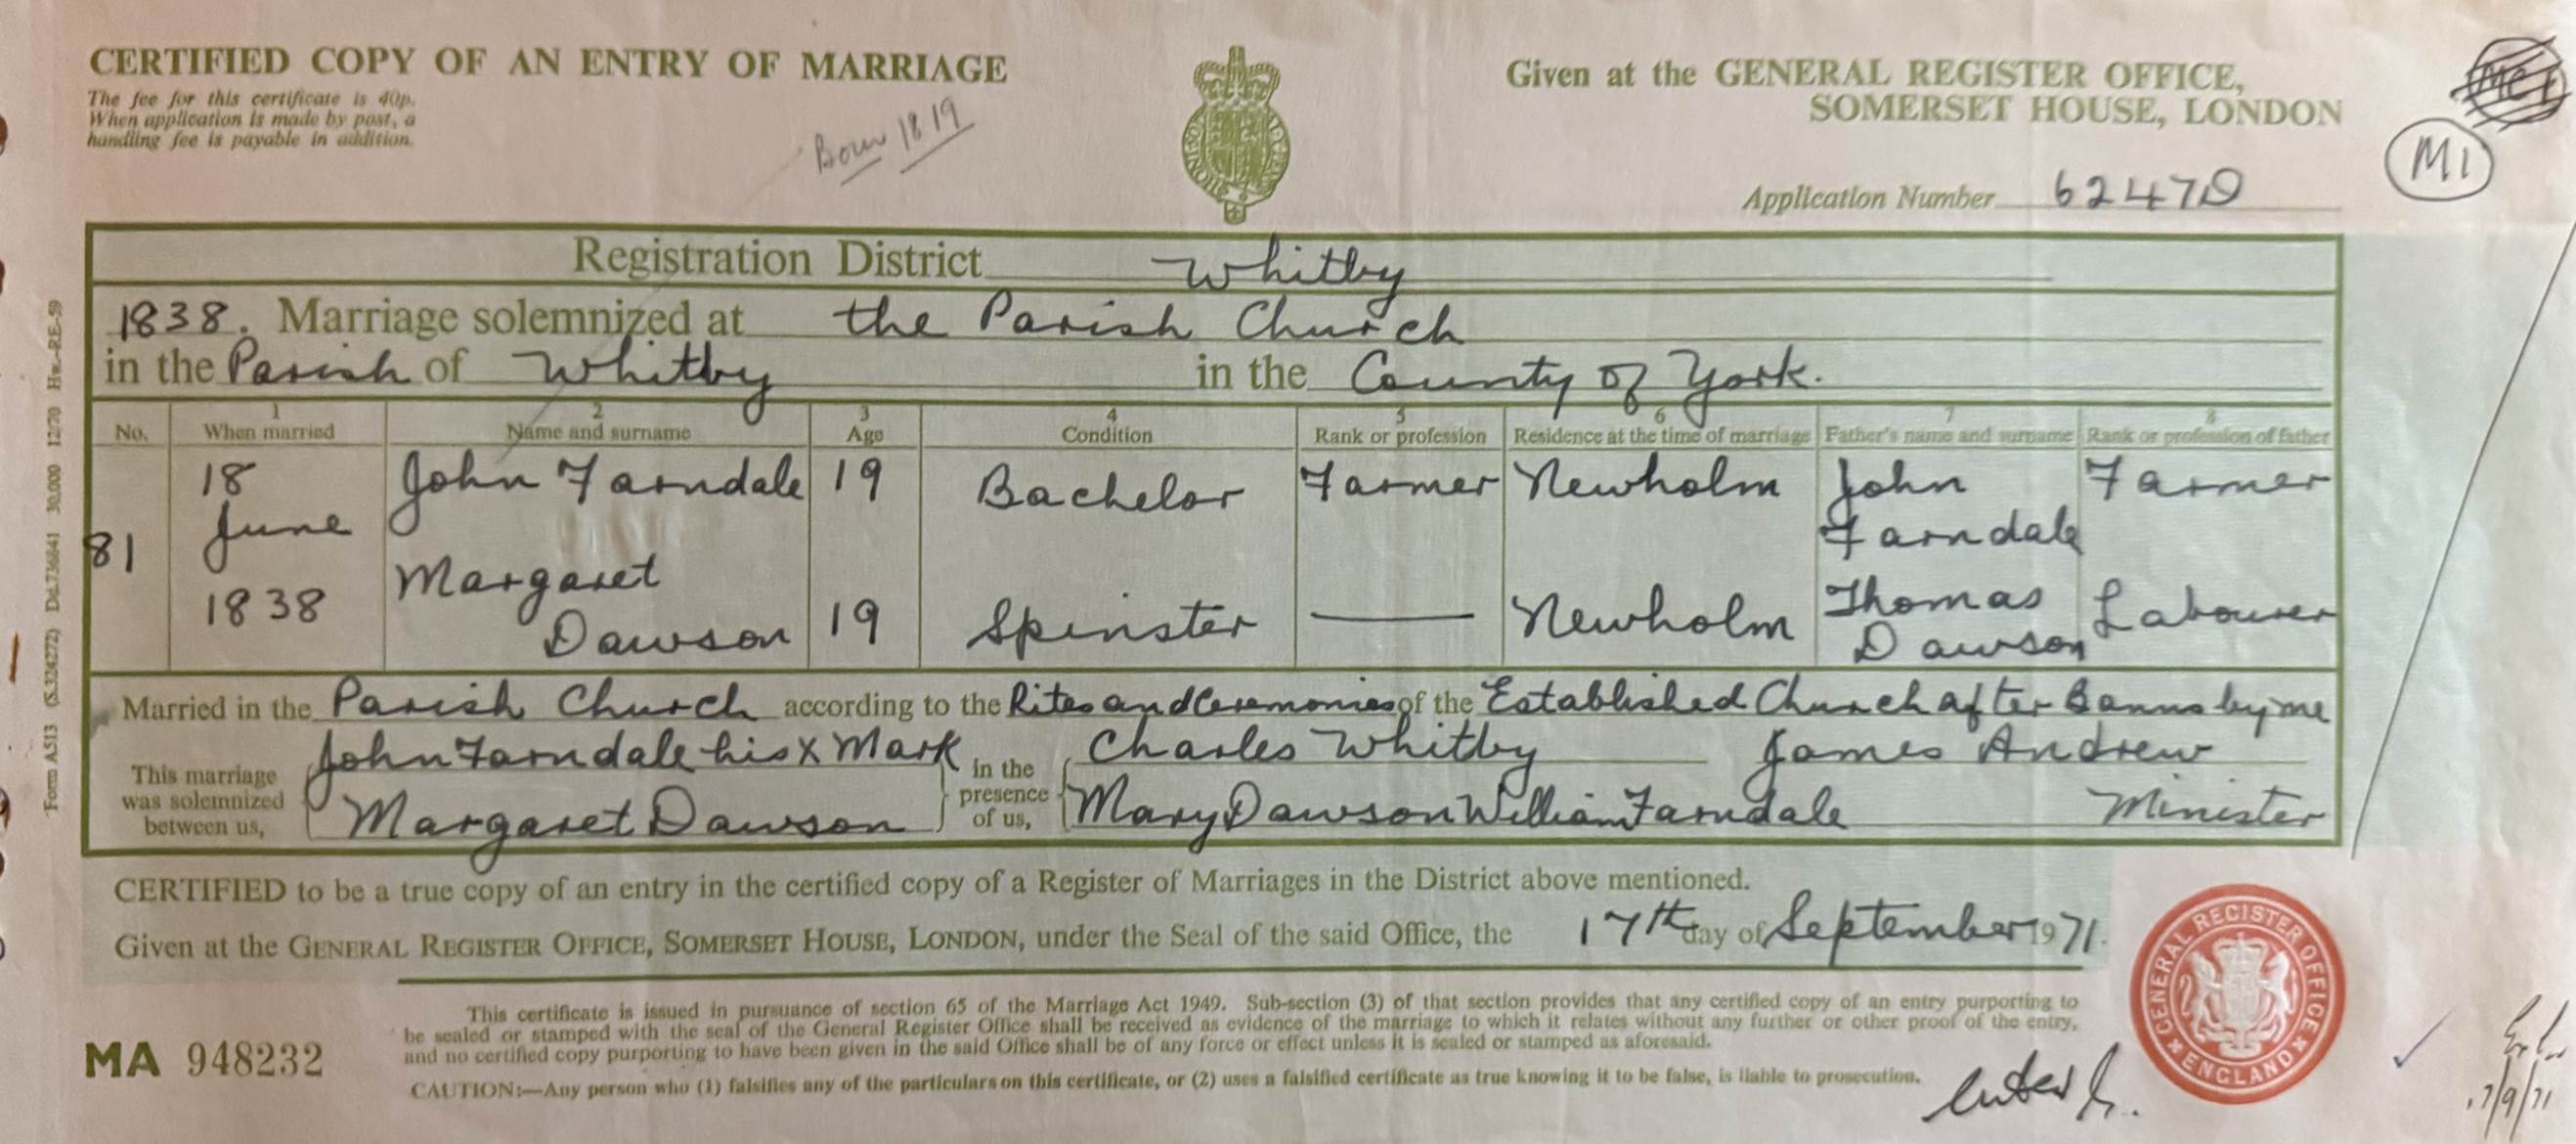 CERTIFIED COPY OF AN ENTRY OF MARRIAGE
The fee for this certificate is 40p.
When application is made by post, a
handling fee is payable in addition.
Born 1819
Given at the GENERAL REGISTER OFFICE,
SOMERSET HOUSE, LONDON
M1
Application Number 6247D
Registration District Whitby
1838. Marriage solemnized at the Parish Church
in the Parish of Whitby in the County of York.
1 2 3 4 5 6 7 8
No. When married Name and surname Age Condition Rank or profession Residence at the time of marriage Father's name and surname Rank or profession of father
81 18 June 1838 John Farndale 19 Bachelor Farmer Newholm John Farndale Farmer
Margaret Dawson 19 Spinster — Newholm Thomas Dawson Labourer
Married in the Parish Church according to the Rites and Ceremonies of the Established Church after Banns by me
This marriage was solemnized between us, John Farndale his X Mark in the presence of us, Charles Whitby James Andrew
Margaret Dawson Mary Dawson William Farndale Minister
CERTIFIED to be a true copy of an entry in the certified copy of a Register of Marriages in the District above mentioned.
Given at the GENERAL REGISTER OFFICE, SOMERSET HOUSE, LONDON, under the Seal of the said Office, the 17th day of September 1971.
This certificate is issued in pursuance of section 65 of the Marriage Act 1949. Sub-section (3) of that section provides that any certified copy of an entry purporting to
be sealed or stamped with the seal of the General Register Office shall be received as evidence of the marriage to which it relates without any further or other proof of the entry,
and no certified copy purporting to have been given in the said Office shall be of any force or effect unless it is sealed or stamped as aforesaid.
MA 948232
CAUTION:—Any person who (1) falsifies any of the particulars on this certificate, or (2) uses a falsified certificate as true knowing it to be false, is liable to prosecution.
GENERAL REGISTER OFFICE
ENGLAND
Form A513 (S.324272) Dd.736841 30,000 12/70 Hw.-RE-59